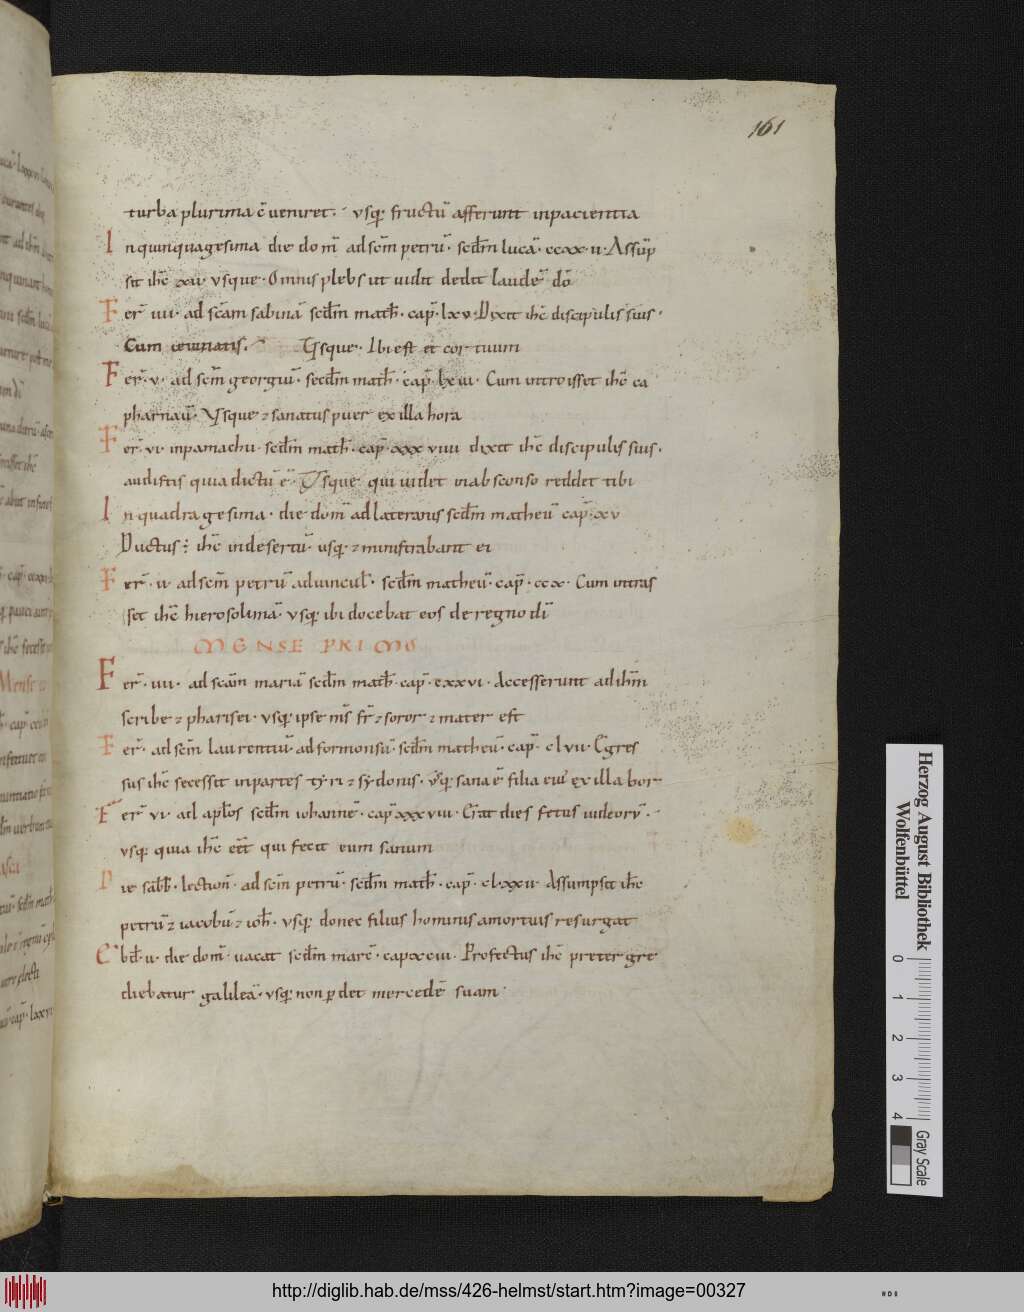 161
turba plurima c̄ ueniret. vsq; fructū afferunt inpacientia
In quinquagesima die dom̄ ad sc̄m petrū. sc̄dm lucā. ccxx.ii. Assūp
sit ih̄c xii vsque. Omnis plebs ut uidit dedit laudē dō
Fer̄ iiii. ad sc̄am sabinā sc̄dm math̄. cap̄. lxv. Dixit ih̄c discipulis suis.
Cum ieiunatis. Vsque. Ibi est et cor tuum
Fer̄. v. ad sc̄m georgiū. secd̄m math̄. cap̄. lxiii. Cum introisset ih̄c ca
pharnaū. Vsque & sanatus puer ex illa hora
Fer̄. vi. inpamachii. sc̄dm math̄. cap̄. xxx viiii dixit ih̄c discipulis suis.
audistis quia dictū ē. Vsque qui uidet in absconso reddet tibi
In quadragesima. die dom̄ ad lateranis sc̄dm matheū cap̄. xv
Ductus ē ih̄c in desertū. usq; & ministrabant ei
Fer̄. ii. ad sc̄m petrū ad uincul̄. sc̄dm matheū. cap̄. ccx. Cum intras
set ih̄c hierosolimā vsq; ibi docebat eos de regno dī
MENSE PRIMO
Fer̄. iiii. ad sc̄am mariā sc̄dm math̄. cap̄. cxxvi. Accesserunt ad ih̄m
scribe & pharisei. vsq; ipse m̄s fr̄ & soror & mater est
Fer̄. ad sc̄m laurentiū. ad formonsū. sc̄dm matheū. cap̄. clvii. Egres
sus ih̄c secessit in partes tyri & sydonis. vsq; sana ē filia ei' ex illa hor
Fer̄ vi. ad apl̄os sc̄dm iohannē. cap̄ xxxviii. Erat dies festus iudeor̄.
vsq; quia ih̄c eēt qui fecit eum sanum
Die sab̄b. lection̄. ad sc̄m petrū. sc̄dm math̄. cap̄. clxxii. Assumpsit ih̄c
petrū & iacobū & ioh̄. vsq; donec filius hominis a mortuis resurgat
Ebd̄. ii. die dom̄. uacat sc̄dm marc̄. cap xcvi. Profectus ih̄c preter gre
diebatur galileā. vsq; non p̱det mercedē suam
Herzog August Bibliothek
Wolfenbüttel
0 1 2 3 4 Gray Scale
http://diglib.hab.de/mss/426-helmst/start.htm?image=00327